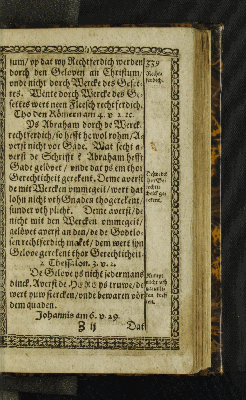 sum/ vp dat wy Rechtferdich werden
dorch den Geloven an Christum/
vnde nicht dorch Wercke des Gese-
tes. Wente dorch Wercke des Ge-
settes wert neen Fleesch rechtferdich.
Tho den Römern am 4. v. 2. ec.
Ys Abraham dorch de Werck
rechtferdich/ so hefft he wol rohm/ A-
verst nicht vor Gade. Wat secht a-
verst de Schrifft? Abraham hefft
Gade gelövet/ vnde dat ys em thor
Gerechticheit gerekent. Deme averst
de mit Wercken vmmegeit/ wert dat
lohn nicht vth Gnaden thogerekent/
sunder vth plicht. Deme averst/ de
nicht mit den Wercken vmmegeit/
gelövet averst an den/ de de Godtlo-
sen rechtferdich maket/ dem wert syn
Gelove gerekent thor Gerechticheit.
2. Thessalon. 3. v. 2.
De Gelove ys nicht jedermans
dinck. Averst de HERE ys truwe/ de
wert juw stercken/ vnde bewaren vör
dem quaden.
Johannis am 6. v. 29.
Dat
339
Recht-
ferdich.